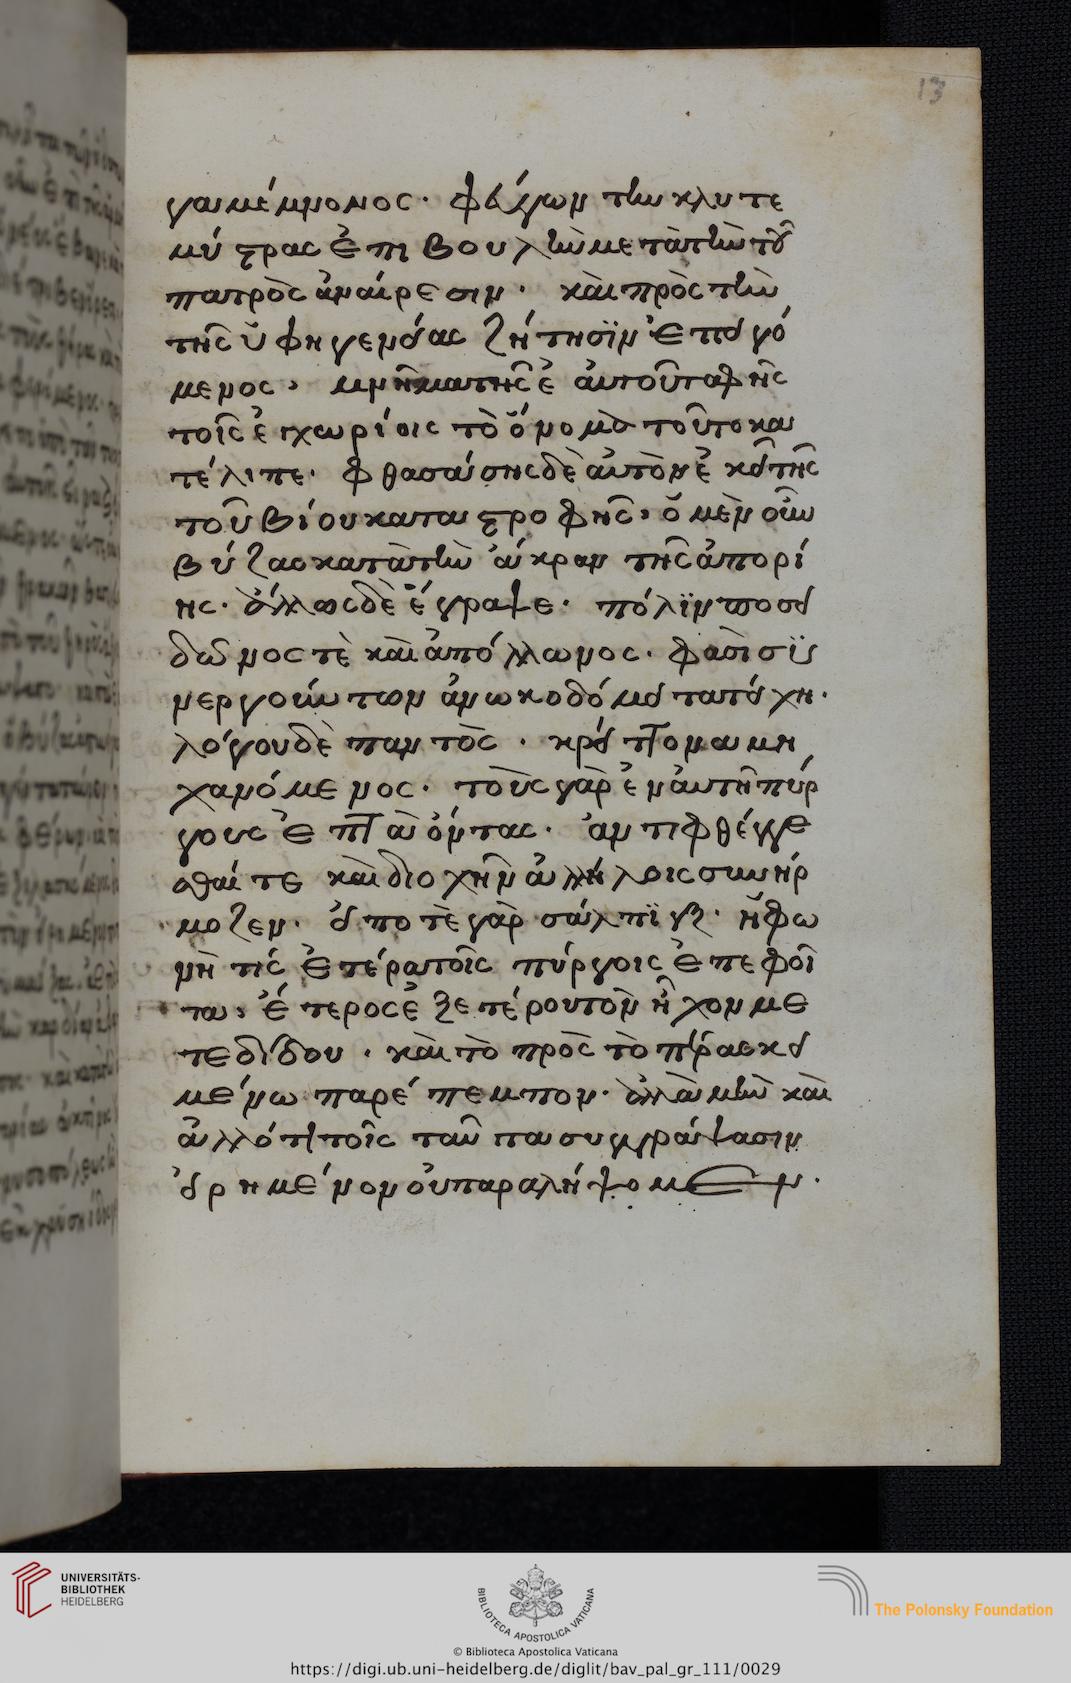 13
γαμέμνονος. φεύγων την κλυτε
μύστρας ἐπιβουλὴν μετὰ τὴν τοῦ
πατρὸς ἀναίρεσιν. καὶ πρὸς τὴν
τῆς ὑφηγενείας ζήτησϊν ἐπειγό
μενος, μνῆμα τῆς ἑαυτοῦ ταφῆς
τοῖς ἐγχωρίοις τὸ ὄνομα τοῦτο κα
τέλιπε. φθασάσης δὲ αὐτὸν ἐκεῖ τῆς
τοῦ βίου καταστροφῆς, ὁ μὲν οὖν
βύζας κατὰ τὴν ἄκραν τῆς ἀπορί
ης. ἄλλως δὲ ἔγραψε. πόλϊν ποσει
δῶνος τὲ καὶ ἀπόλλωνος. φασὶ σϋ
νεργούντων ἀνωκοδόμει τα τείχη.
λόγου δὲ παντὸς. κρεῖττον ἀμη
χανόμενος. τοὺς γὰρ ἐν αὐτῆ πύρ
γους ἑπτὰ ὄντας. ἀντιφθέγγε
σθαί τε καὶ διοχῆν ἀλλήλοις συνήρ
μοζεν. εἴ ποτὲ γὰρ σάλπϊγξ. ἢ φω
νὴ τίς ἑτέρα τοῖς πύργοις ἐπεφοῖ
τα, ἕτερος ἐξ ἑτέρου τὸν ἦχον με
τεδίδου. καὶ τὸ πρὸς τὸ πέρας κει
μένω παρέπεμπον. ἀλλὰ μὴν καὶ
ἄλλό τι τοῖς ταῦτα συγγράψασιν
εἰρημένον οὐ παραλήψομεν.
UNIVERSITÄTS-
BIBLIOTHEK
HEIDELBERG
BIBLIOTECA APOSTOLICA VATICANA
The Polonsky Foundation
© Biblioteca Apostolica Vaticana
https://digi.ub.uni-heidelberg.de/diglit/bav_pal_gr_111/0029